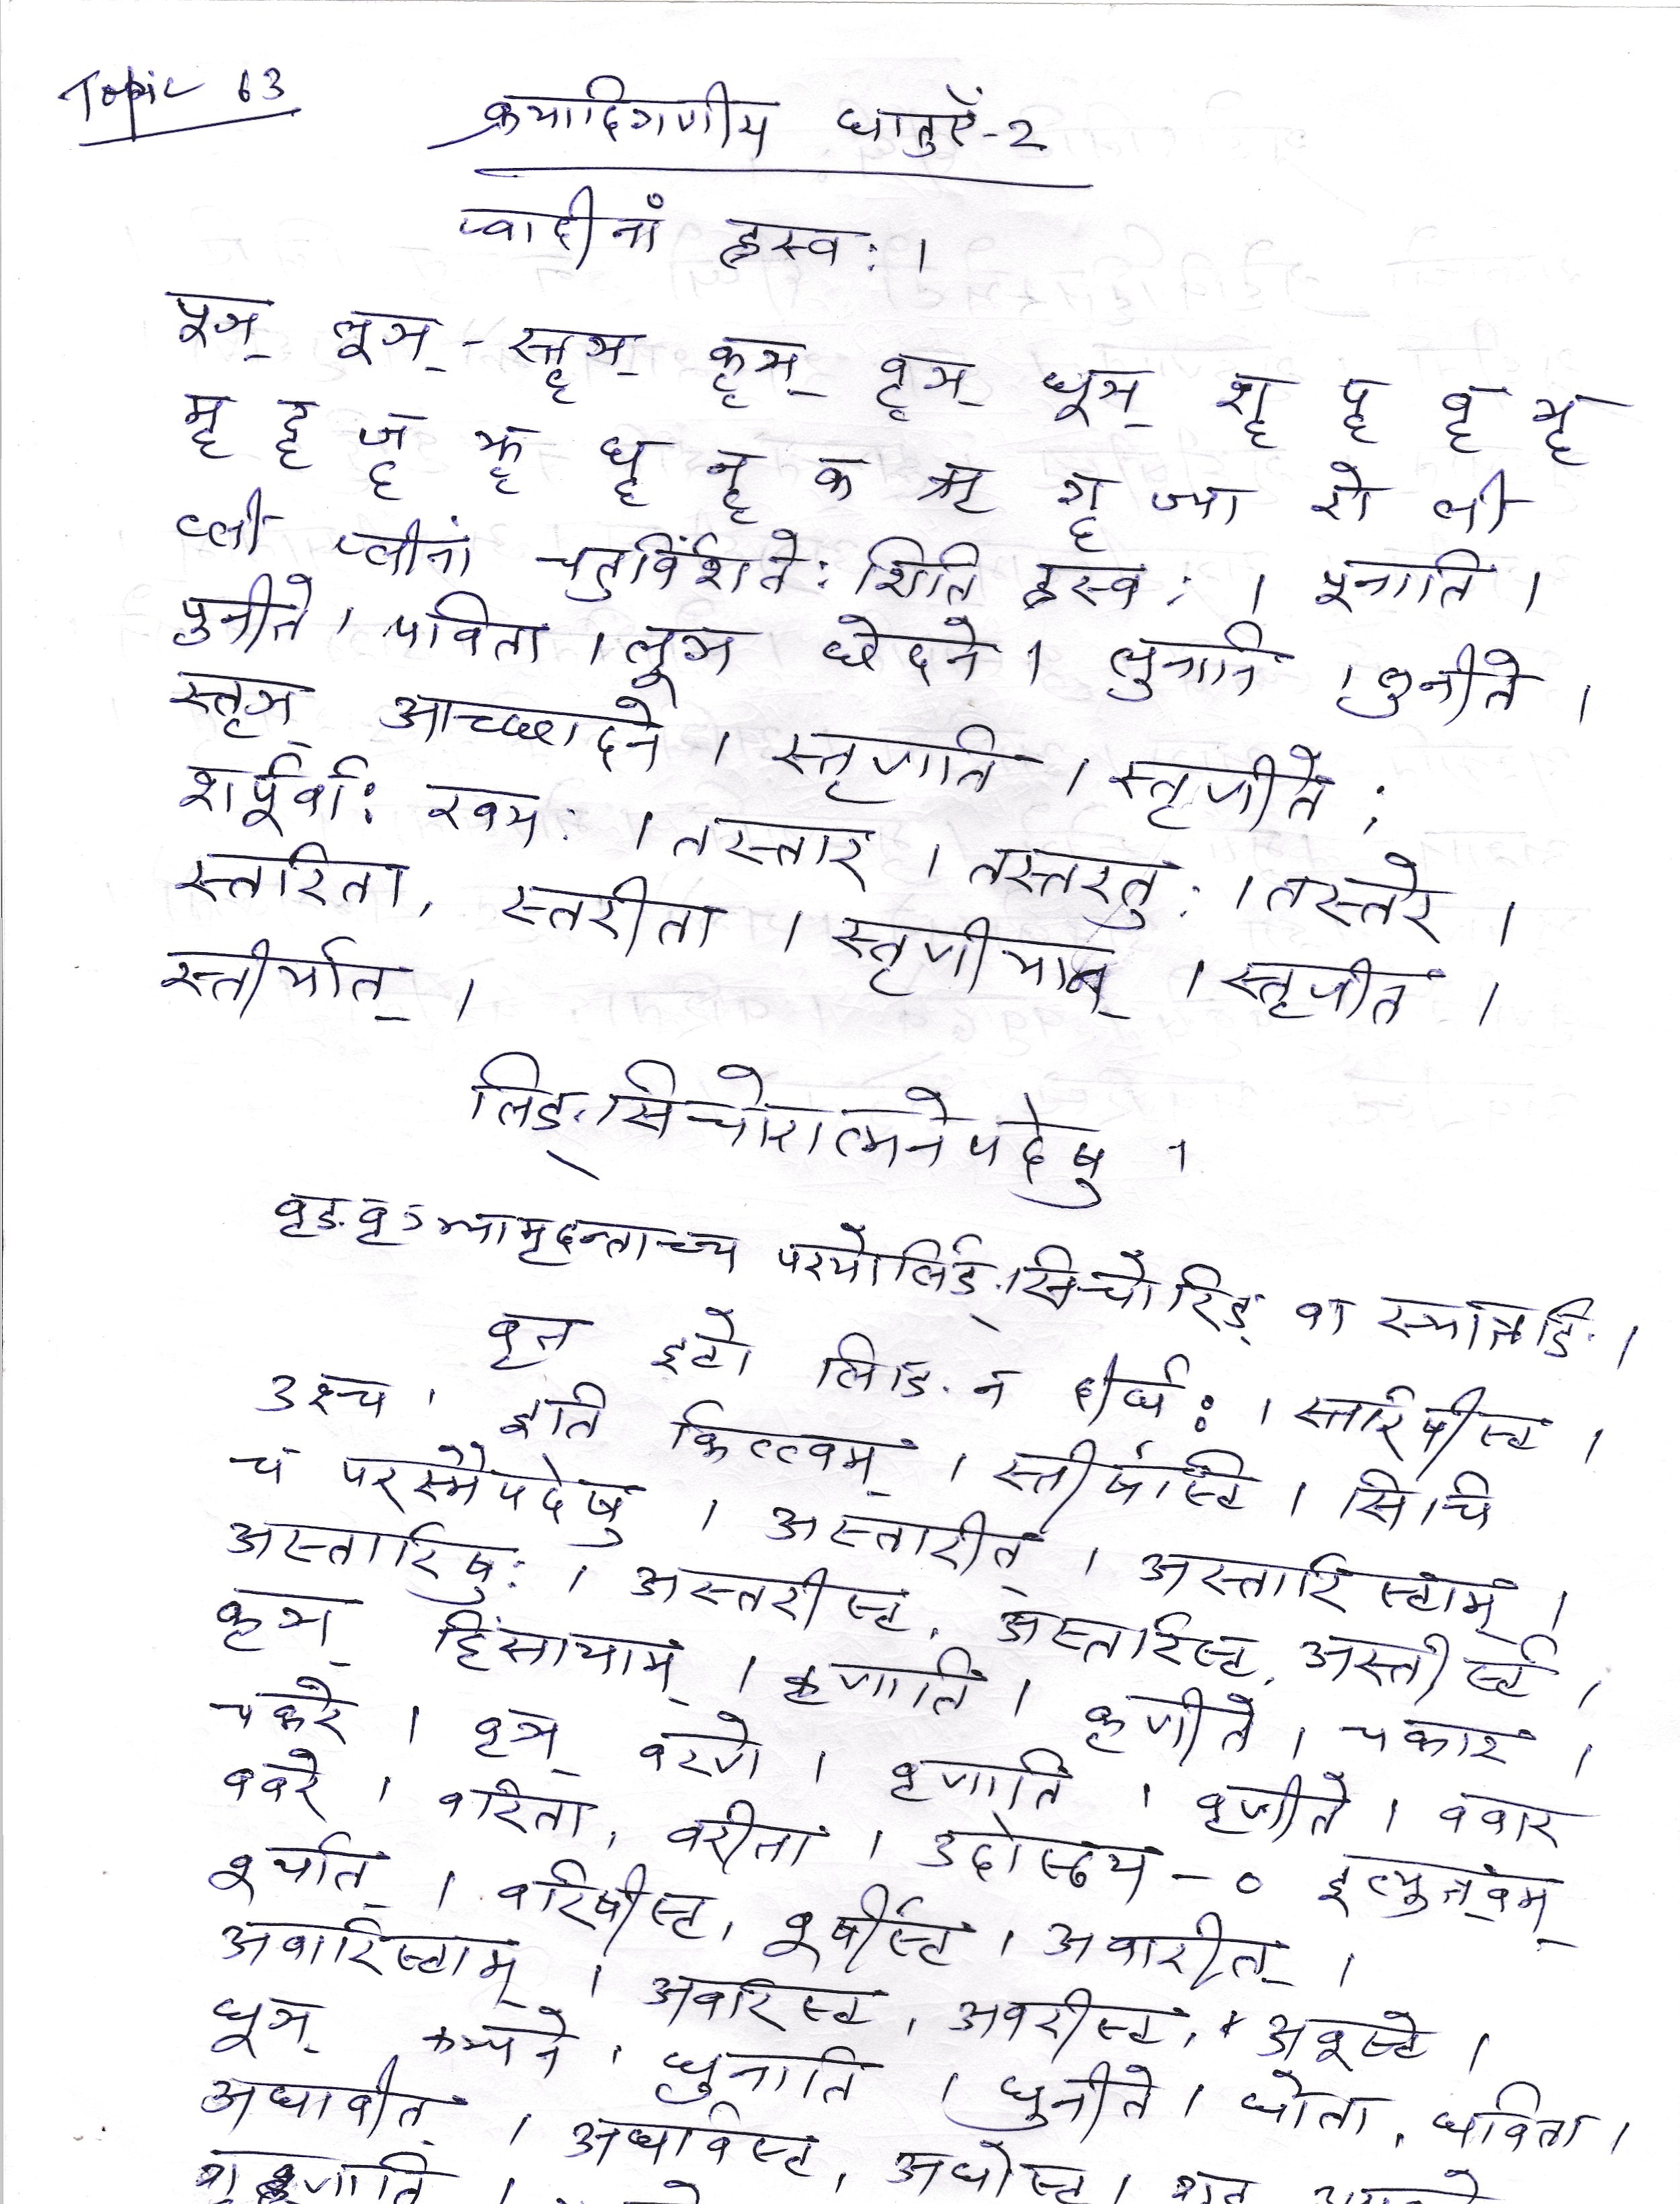 Topic 63
क्रयादिगणीय धातुएँ-२
प्वादीनां ह्रस्वः ।
पूञ् लूञ् - स्तॄञ् कॄञ् वॄञ् धूञ् शॄ पॄ वॄ भॄ
मॄ दॄ जॄ झॄ धॄ नॄ क ॠ गॄ ज्या री ली
व्ली प्लीनां चतुर्विंशतेः शिति ह्रस्वः । पूनाति ।
पुनीते । पविता । लूञ छेदने । लुनाति । लुनीते ।
स्तृञ् आच्छादने । स्तृणाति । स्तृणीते ;
शर्पूर्वाः खयः । तस्तार । तस्तरतुः । तस्तरे ।
स्तरिता, स्तरीता । स्तृणीयात् । स्तृणीत ।
स्तीर्यात् ।
लिङ्.सिचोरात्मनेपदेषु ।
वृङ.वृञ्भ्यामृदन्ताच्च परयोर्लिङ्.सिचोरिड् वा स्यात्तङि. ।
वृत इटो लिङि. न दीर्घः । स्तरिषीस्ट ।
उश्च । इति कित्त्वम् । स्तीर्षीस्ट । सिचि
च परस्मैपदेषु । अस्तारीत् । अस्तारिस्टाम् ।
अस्तारिषुः । अस्तरीस्ट, अस्तरिस्ट, अस्तीर्स्ट ।
कृञ् हिंसायाम् । कृणाति । कृणीते । चकार ।
चकरे । वृञ् वरणे । वृणाति । वृणीते । ववार
ववरे । वरिता, वरीता । उदोस्ठय - ० इत्युत्वम्
वूर्यात् । वरिषीस्ट, वूर्षीस्ट । अवारीत् ।
अवारिस्टाम् । अवरिस्ट, अवरीस्ट, अवूस्टे ।
धूञ् कम्पने । धुनाति । धुनीते । धोता, धविता ।
अधावीत् । अधविस्ट, अधोस्ट ।